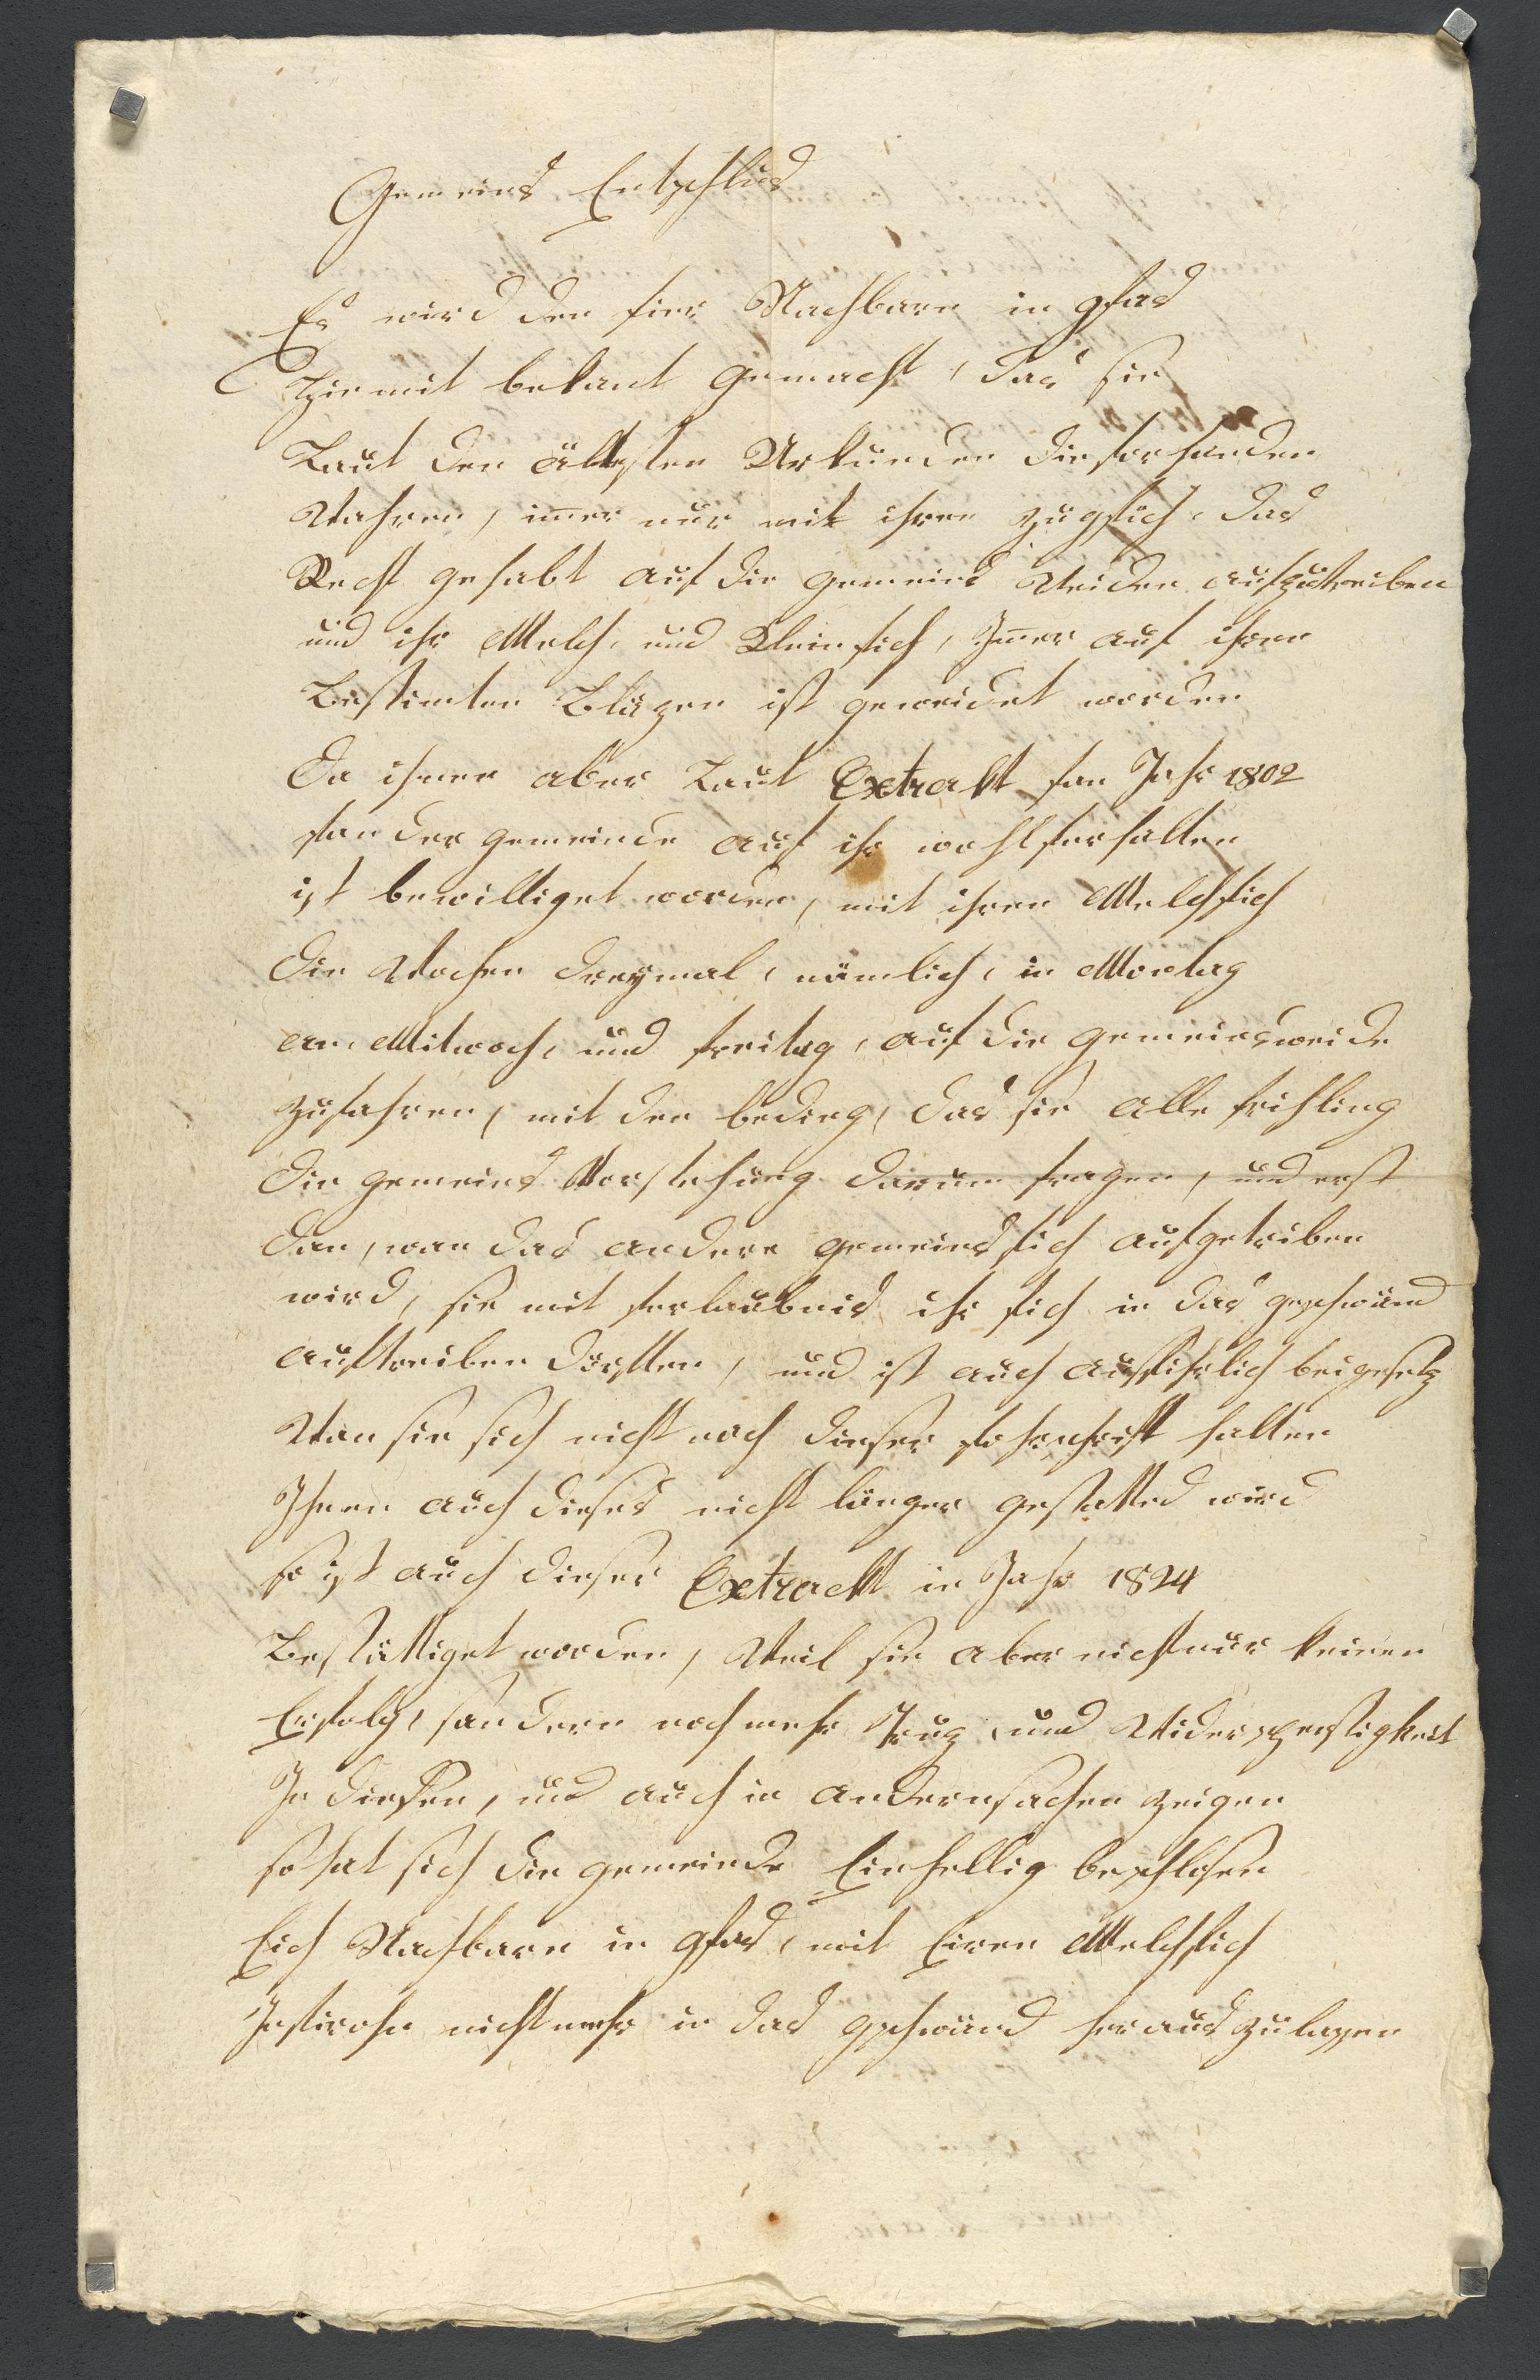 Gemeins Entschlus
Es wird den fier Nachbarn in gfas
Hiermit bekant gemacht, das sie
Laut den ältesten Urkunden die forhanden
Wahren, imer nur mit ihren Zugfich, das
Recht gehabt auf die gemeind Weiden aufzutreiben
und ihr Melch, und Kleinfich, Imer auf ihren
Bestimten Bläzen ist geweidet worden
Da ihnen aber Laut Extrakt fan Jahr 1802
fan der gemeinde auf ihr wohlferhalten
ist bewilliget worden, mit ihren Melchfich
die Wochen dreymal, nämlich, in Montag
am Mitwoch, und freitag, auf die gemeinsweide
zufahren, mit den beding, das sie alle frihling
die gemeins Vorstehung darum fragen, und erst
dan, wan das andere gemeinsfich aufgetriben
wird, sie mit ferlaubnis ihr fich in das geschwänd
auftreiben dörften, und ist auch ausfihrlich beigesetz
Wan sie sich nicht nach dieser fohrschrift halten
Ihnen auch dieses nicht länger gestatted wird
so ist auch dieser Extrackt in Jahr 1824
Bestättiget worden, Weil sie aber nicht nur keinen
Erfolg, sandern noch mehr Truz, und Widerspenstigkeit
In diesen, und auch in andern sachen zeigen
so hat sich die gemeinde Einhellig beschlosen
Eich Nachbarn in gfas, mit Eiren Melchfich
Infirohn nicht mehr in das gschwänd heraus zulassen